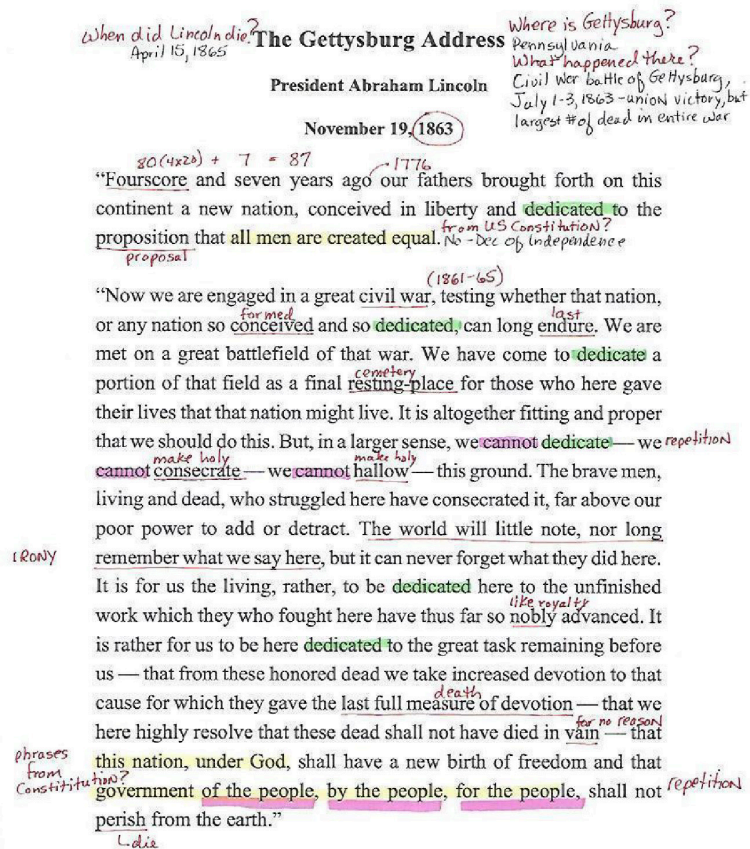 When did Lincoln die?
April 15, 1865
The Gettysburg Address
Where is Gettysburg?
Pennsylvania
What happened there?
Civil War battle of Gettysburg,
July 1-3, 1863 - union victory, but
largest # of dead in entire war
President Abraham Lincoln
November 19, 1863
80 (4x20) + 7 = 87
1776
“Fourscore and seven years ago our fathers brought forth on this
continent a new nation, conceived in liberty and dedicated to the
from US Constitution?
proposition that all men are created equal.
No - Dec of Independence
proposal
(1861-65)
“Now we are engaged in a great civil war, testing whether that nation,
formed
last
or any nation so conceived and so dedicated, can long endure. We are
met on a great battlefield of that war. We have come to dedicate a
cemetery
portion of that field as a final resting-place for those who here gave
their lives that that nation might live. It is altogether fitting and proper
that we should do this. But, in a larger sense, we cannot dedicate — we
repetition
make holy
make holy
cannot consecrate — we cannot hallow — this ground. The brave men,
living and dead, who struggled here have consecrated it, far above our
poor power to add or detract. The world will little note, nor long
IRONY
remember what we say here, but it can never forget what they did here.
It is for us the living, rather, to be dedicated here to the unfinished
like royalty
work which they who fought here have thus far so nobly advanced. It
is rather for us to be here dedicated to the great task remaining before
us — that from these honored dead we take increased devotion to that
death
cause for which they gave the last full measure of devotion — that we
for no reason
here highly resolve that these dead shall not have died in vain — that
phrases
from
Constititution?
this nation, under God, shall have a new birth of freedom and that
government of the people, by the people, for the people, shall not
repetition
perish from the earth.”
die